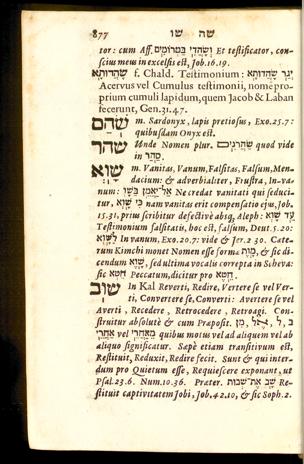 877 שה שו
tor: cum Aff. וְשָׂהֲדִי בַּמְּרוֹמִים Et testificator, con-
scius meus in excelsis est, Job. 16. 19.
שָׂהֲדוּתָא f. Chald. Testimonium: יְגַר שָׂהֲדוּתָא
Acervus vel Cumulus testimonii, nomẽ pro-
prium cumuli lapidum, quem Jacob & Laban
fecerunt, Gen. 31. 47.
שֹׁהַם m. Sardonyx, lapis pretiosus, Exo. 25. 7:
quibusdam Onyx est.
שהר Unde Nomen plur. שַׂהֲרֹנִים quod vide
in סהר
שָׁוְא m. Vanitas, Vanum, Falsitas, Falsum, Men-
dacium: & adverbialiter, Frustra, In-va-
num: אַל־יַאֲמֵן בַּשָּׁוְ Ne credat vanitati qui seduci-
tur, כִּי שָׁוְא nam vanitas erit compensatio ejus, Job.
15. 31, prius scribitur defectivè absq; Aleph: עֵד שָׁוְא
Testimonium falsitatis, hoc est, falsum, Deut. 5. 20:
לַשָּׁוְא In vanum, Exo. 20. 7: vide & Jer. 2 30. Cate-
rum Kimchi monet Nomen esse forma מָוֶת, & sic di-
cendum שָׁוֶא, sed ultima vocalis correpta in Scheva:
sic חֵטְא Peccatum, dicitur pro חֵטֶא.
שׁוּב In Kal Reverti, Redire, Vertere se vel Ver-
ti, Convertere se, Converti: Avertere se vel
Averti, Recedere, Retrocedere, Retroagi. Con-
struitur absolutè & cum Præpost. ב, ל, אל, מן,
אַחֲרֵי vel מֵאַחֲרֵי quibus motus vel ad aliquem vel ab
aliquo significatur. Sæpè etiam transitivum est,
Restituit, Reduxit, Redire fecit. Sunt & qui inter-
dum pro Quietum esse, Requiescere exponant, ut
Psal. 23. 6. Num. 10. 36. Præter. שָׁב אֶת־שְׁבוּת Re-
stituit captivitatem Jobi, Job 42. 10, & sic Soph. 2.